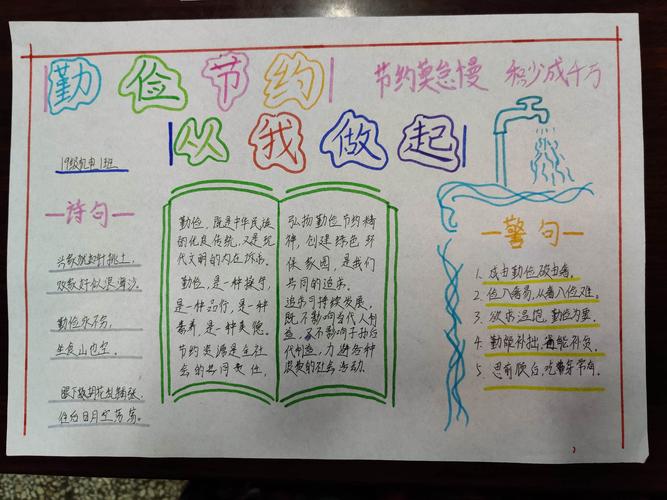 勤俭节约
节约莫怠慢 积少成千万
从我做起
19级机电1班
诗句
兴家犹如针挑土,
败家好似浪淘沙。
勤俭永不穷,
坐食山也空。
眼下胡花乱铺张,
往后日月空荡荡。
勤俭,既是中华民族
的优良传统,又是现
代文明的内在
勤俭,是一种操守,
是一种品行,是一种
素养,是一种美德。
节约资源是全社
会的共同责任,
弘扬勤俭节约精
神,创建绿色环
保家园,是我们
共同的追求。
追求可持续发展,
既不影响当代人制
造,又不影响子孙后
代制造,力避各种
浪费的社会活动。
警句
1. 成由勤俭破由奢。
2. 俭入奢易,从奢入俭难。
3. 欲求温饱,勤俭为要。
4. 勤能补拙,俭能补贫。
5. 思前顾后,吃穿常有。